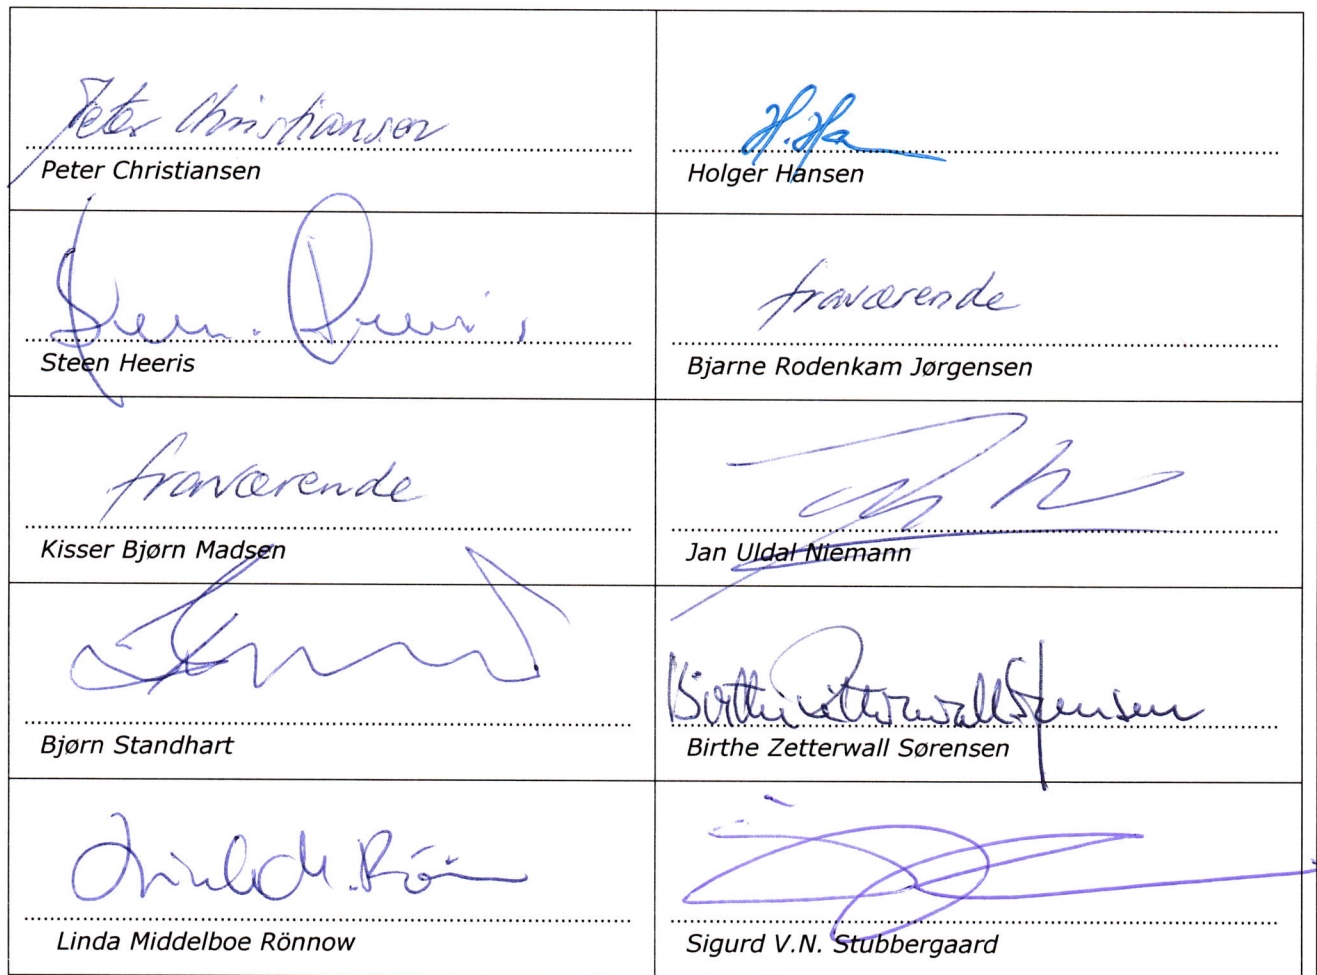 Peter Christiansen
Peter Christiansen
H. Ha
Holger Hansen
Steen Heeris
fraværende
Bjarne Rodenkam Jørgensen
fraværende
Kisser Bjørn Madsen
Jan Uldal Niemann
Bjørn Standhart
Birthe Zetterwall Sørensen
Birthe Zetterwall Sørensen
Linda M. Rön
Linda Middelboe Rönnow
Sigurd V.N. Stubbergaard